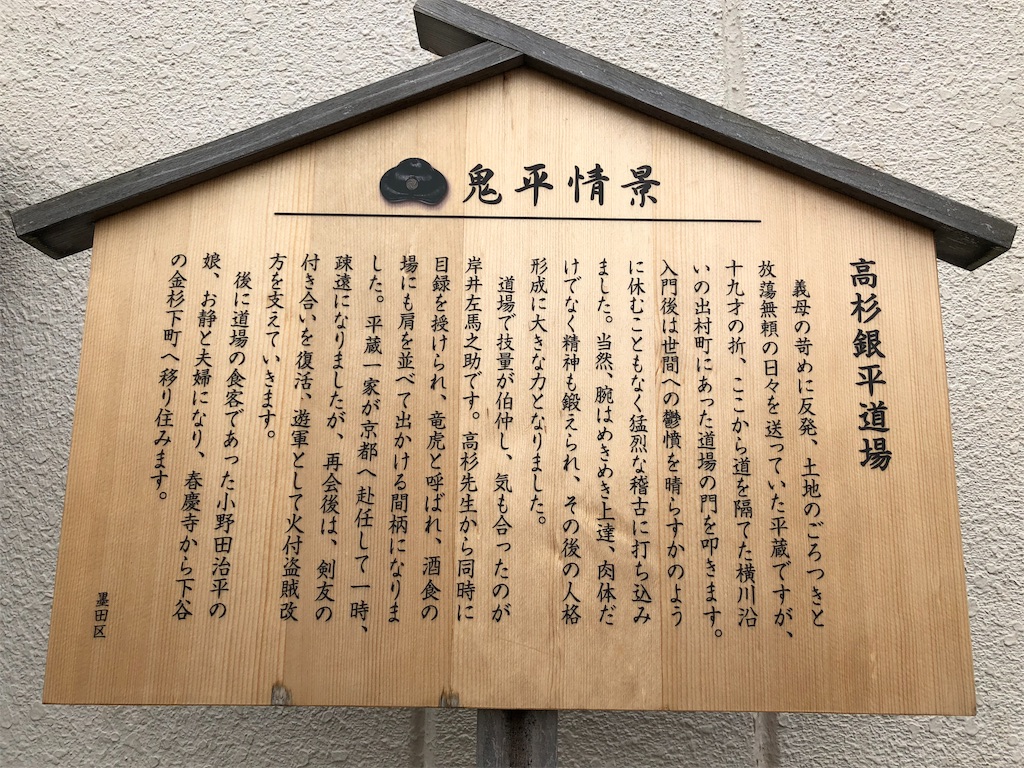 鬼平情景
高杉銀平道場
義母の苛めに反発、土地のごろつきと
放蕩無頼の日々を送っていた平蔵ですが、
十九才の折、ここから道を隔てた横川沿
いの出村町にあった道場の門を叩きます。
入門後は世間への鬱憤を晴らすかのよう
に休むこともなく猛烈な稽古に打ち込み
ました。当然、腕はめきめき上達、肉体だ
けでなく精神も鍛えられ、その後の人格
形成に大きな力となりました。
道場で技量が伯仲し、気も合ったのが
岸井左馬之助です。高杉先生から同時に
目録を授けられ、竜虎と呼ばれ、酒食の
場にも肩を並べて出かける間柄になりま
した。平蔵一家が京都へ赴任して一時、
疎遠になりましたが、再会後は、剣友の
付き合いを復活、遊軍として火付盗賊改
方を支えていきます。
後に道場の食客であった小野田治平の
娘、お静と夫婦になり、春慶寺から下谷
の金杉下町へ移り住みます。
墨田区